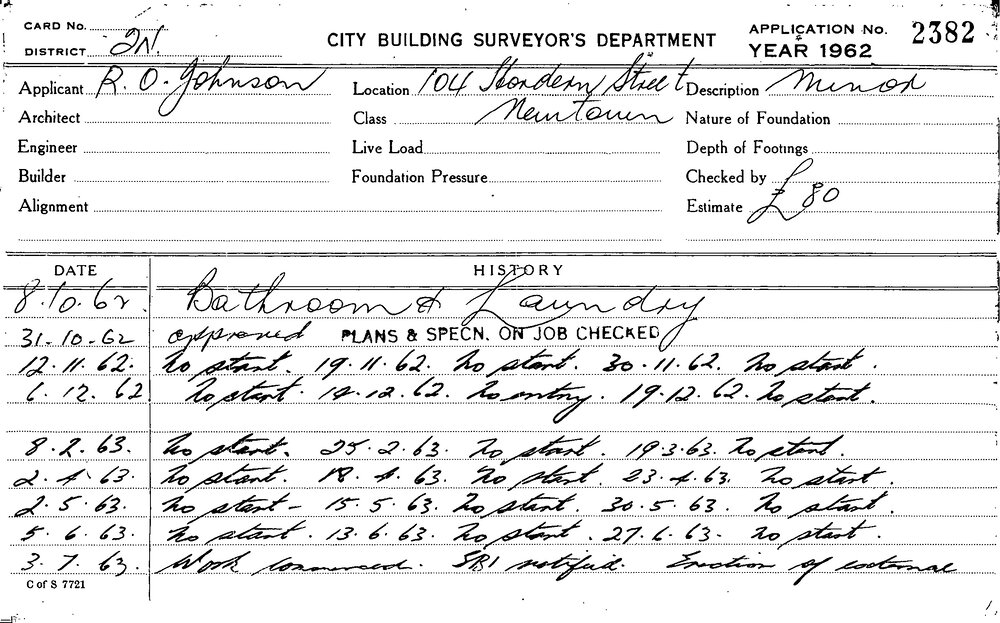 CARD No.
DISTRICT 2N.
CITY BUILDING SURVEYOR'S DEPARTMENT
APPLICATION No. 2382
YEAR 1962
Applicant R. O. Johnson
Location 104 Hordern Street
Description Minor
Architect
Class Newtown
Nature of Foundation
Engineer
Live Load
Depth of Footings
Builder
Foundation Pressure
Checked by
Alignment
Estimate £80
DATE HISTORY
8.10.62 Bathroom & Laundry
31-10-62 approved PLANS & SPECN. ON JOB CHECKED
12.11.62. No start. 19.11.62. No start. 30.11.62. No start.
6.12.62 No start. 14.12.62. No entry. 19.12.62. No start.
8.2.63. No start. 25.2.63. No start. 19.3.63. No start.
2.4.63. No start. 18.4.63. No start. 23.4.63. No start.
2.5.63. No start - 15.5.63. No start. 30.5.63. No start.
5.6.63. No start. 13.6.63. No start. 27.6.63. No start.
3.7.63. Work commenced. notified. Erection of external
C of S 7721